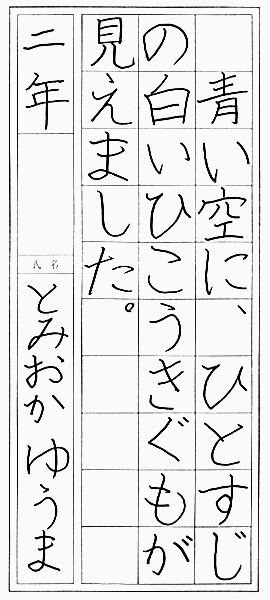 青い空に、ひとすじ
の白いひこうきぐもが
見えました。
二年
氏名
とみおかゆうま